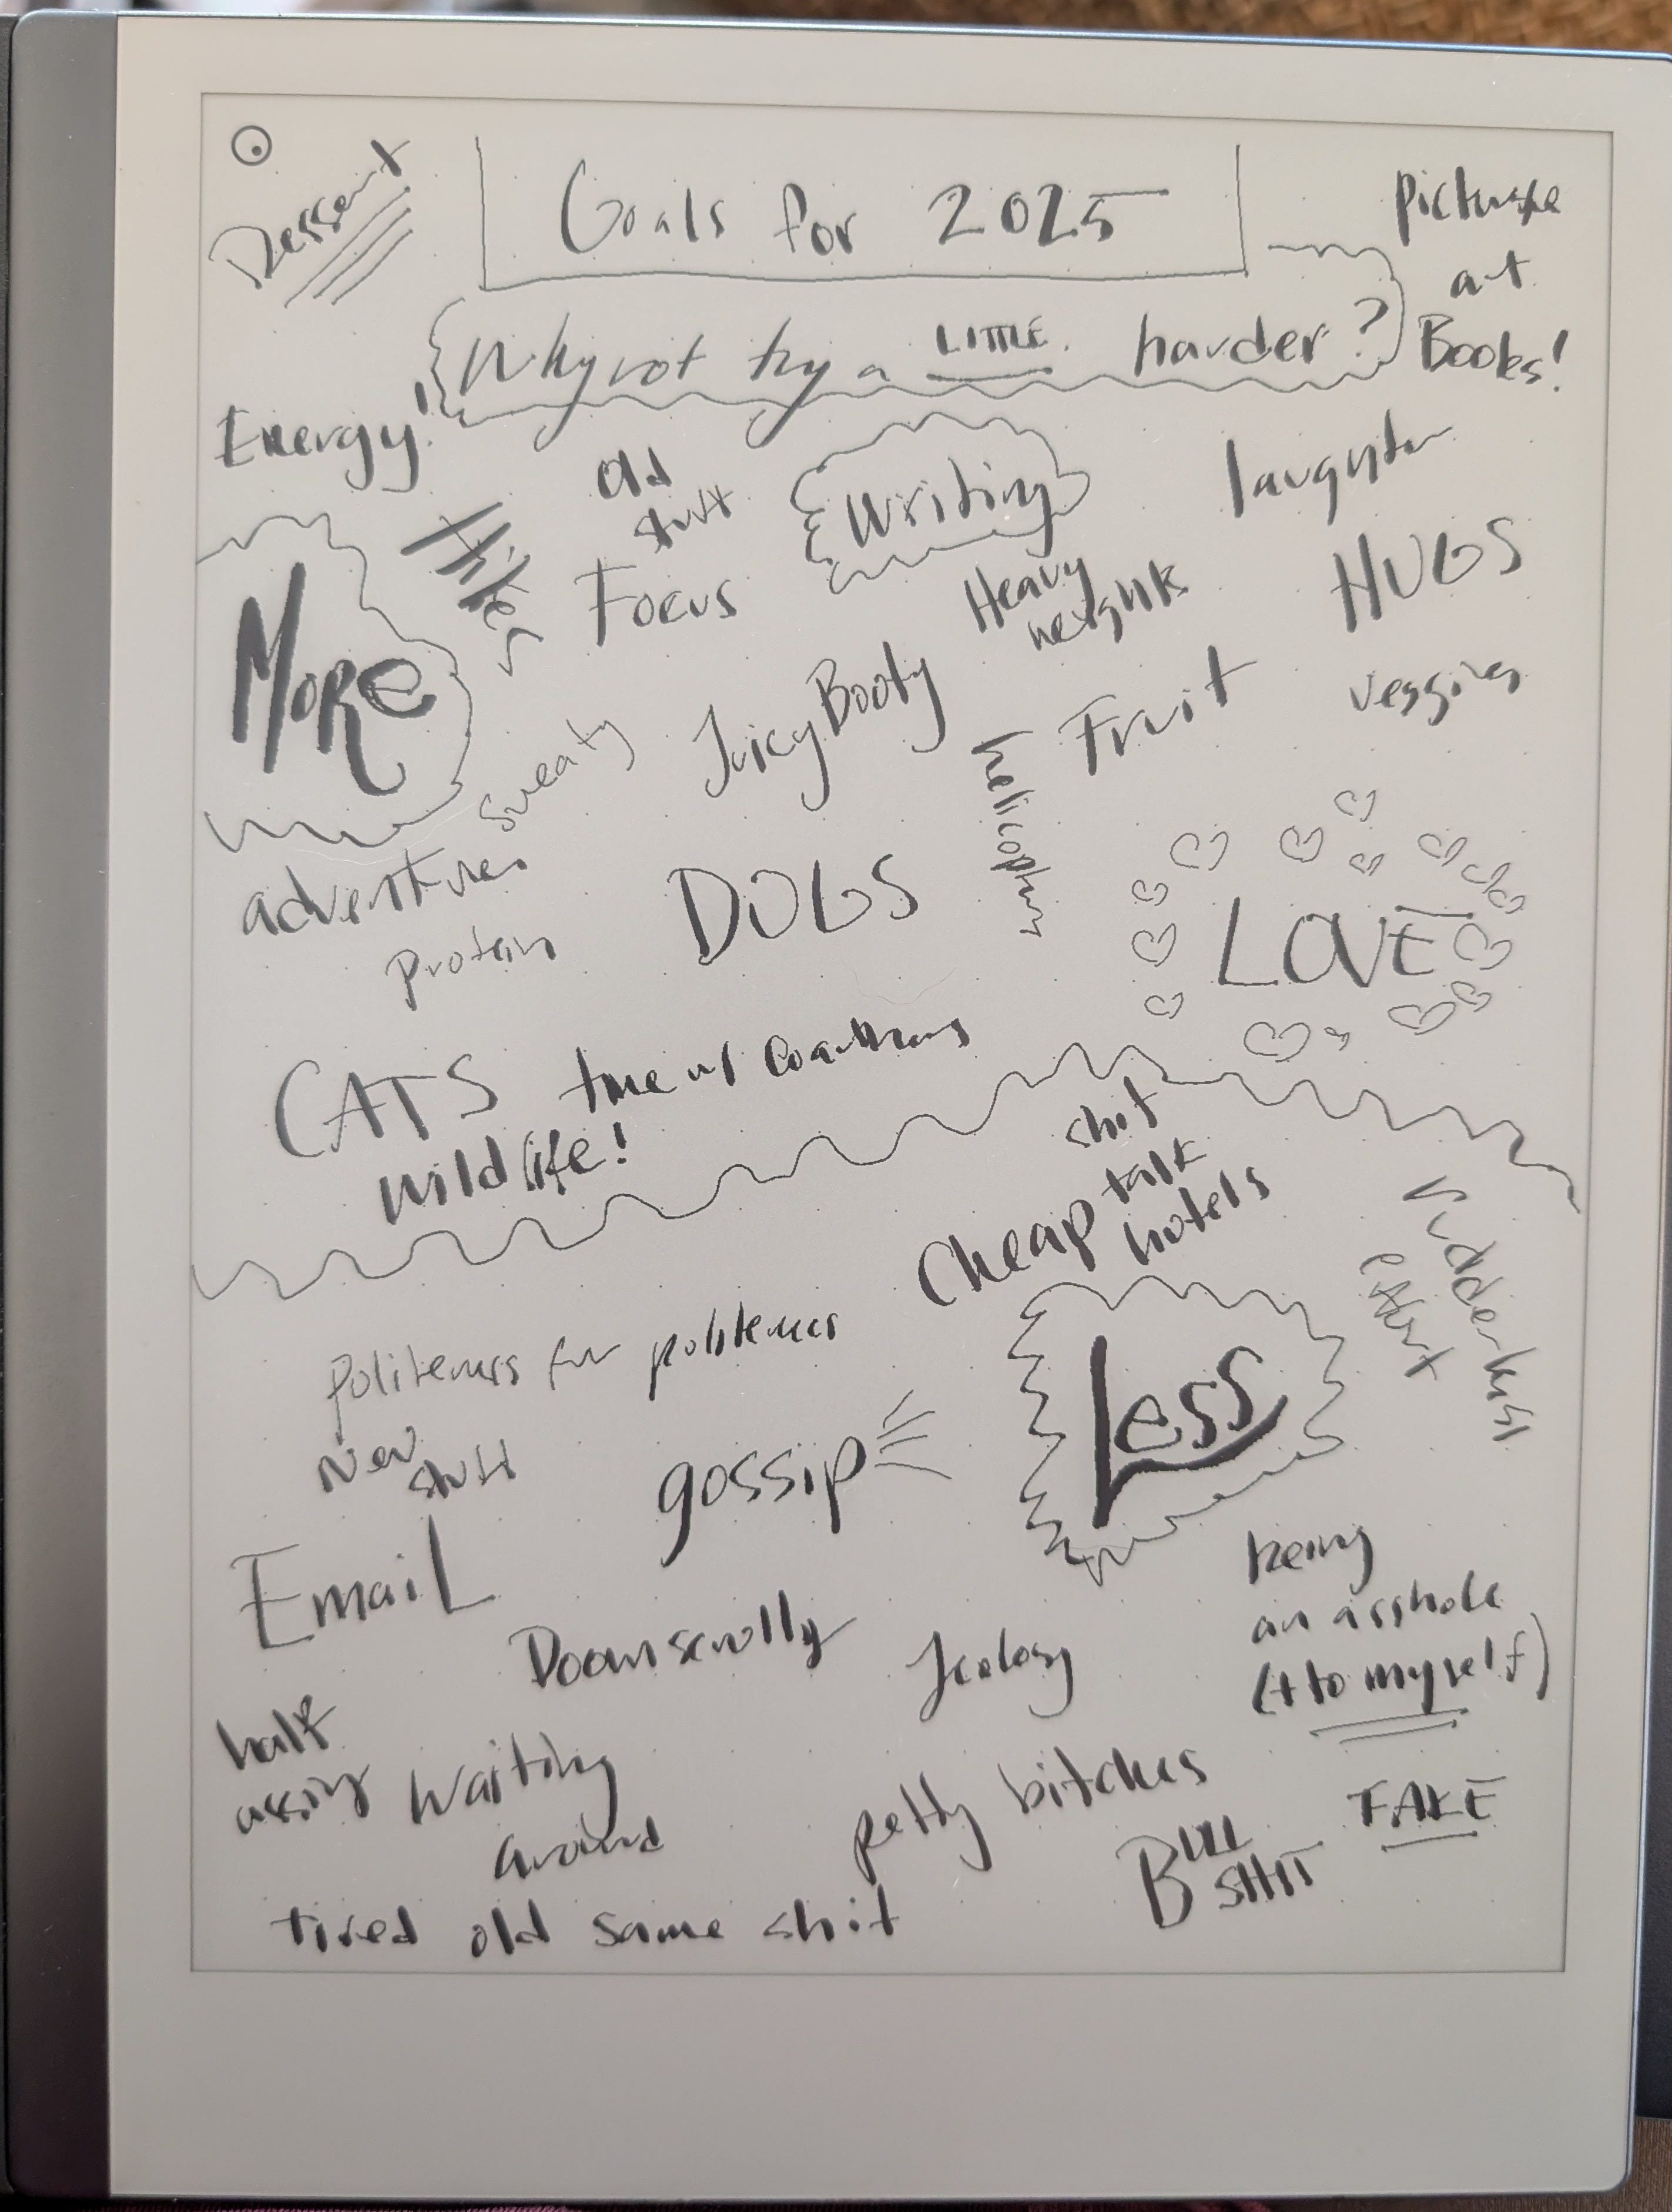 Dessert
Goals for 2025
picture
art
Books!
Why not try a LITTLE harder?
Energy!
Old
stuff
Writing
laughter
Hikes
Focus
Heavy
weights
HUGS
MORe
sweaty
Juicy Booty
Fruit
veggies
helicopters
adventures
protein
DOGS
LOVE
CATS
time w/
Wildlife!
shit
talk
Cheap
hotels
effort
Politeness for politeness
New
stuff
gossip
Less
Email
Doomscrolly
being
an asshole
(+ to myself)
half
assing
Waiting
around
petty bitches
FAKE
BULL
SHIT
tired old same shit